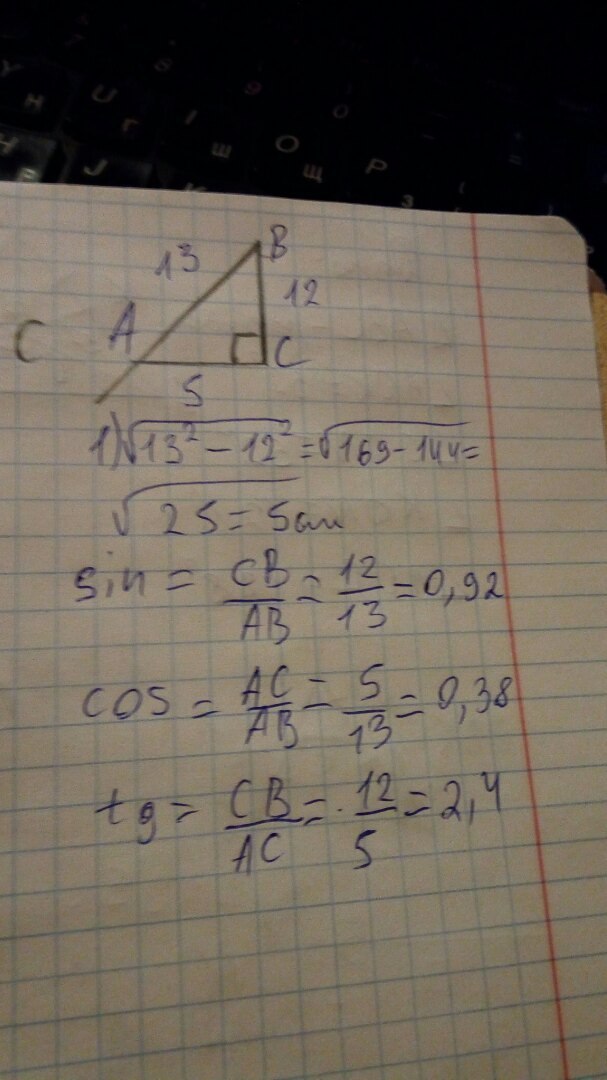 У U I O P
Н Г Ш Щ З
J
13 B
12
C A C
5
1) √13² - 12² = √169 - 144 =
√25 = 5см
sin = CB/AB = 12/13 = 0,92
cos = AC/AB = 5/13 = 0,38
tg = CB/AC = 12/5 = 2,4